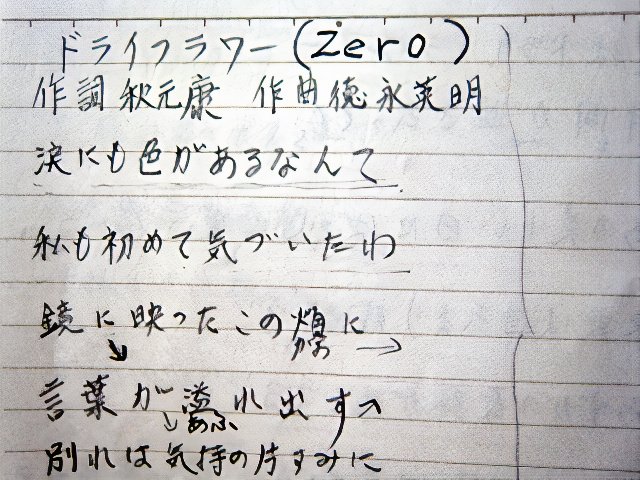 ドライフラワー(Zero)
作詞 秋元康 作曲 徳永英明
涙にも色があるなんて
私も初めて気づいたわ
鏡に映ったこの頬に
かお
言葉が溢れ出す
あふ
別れは気持の片すみに